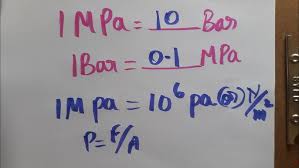 1 MPa = 10 Bar
1Bar = 0.1 MPa
1Mpa = 10⁶ pa (or) N/m²
P = F/A